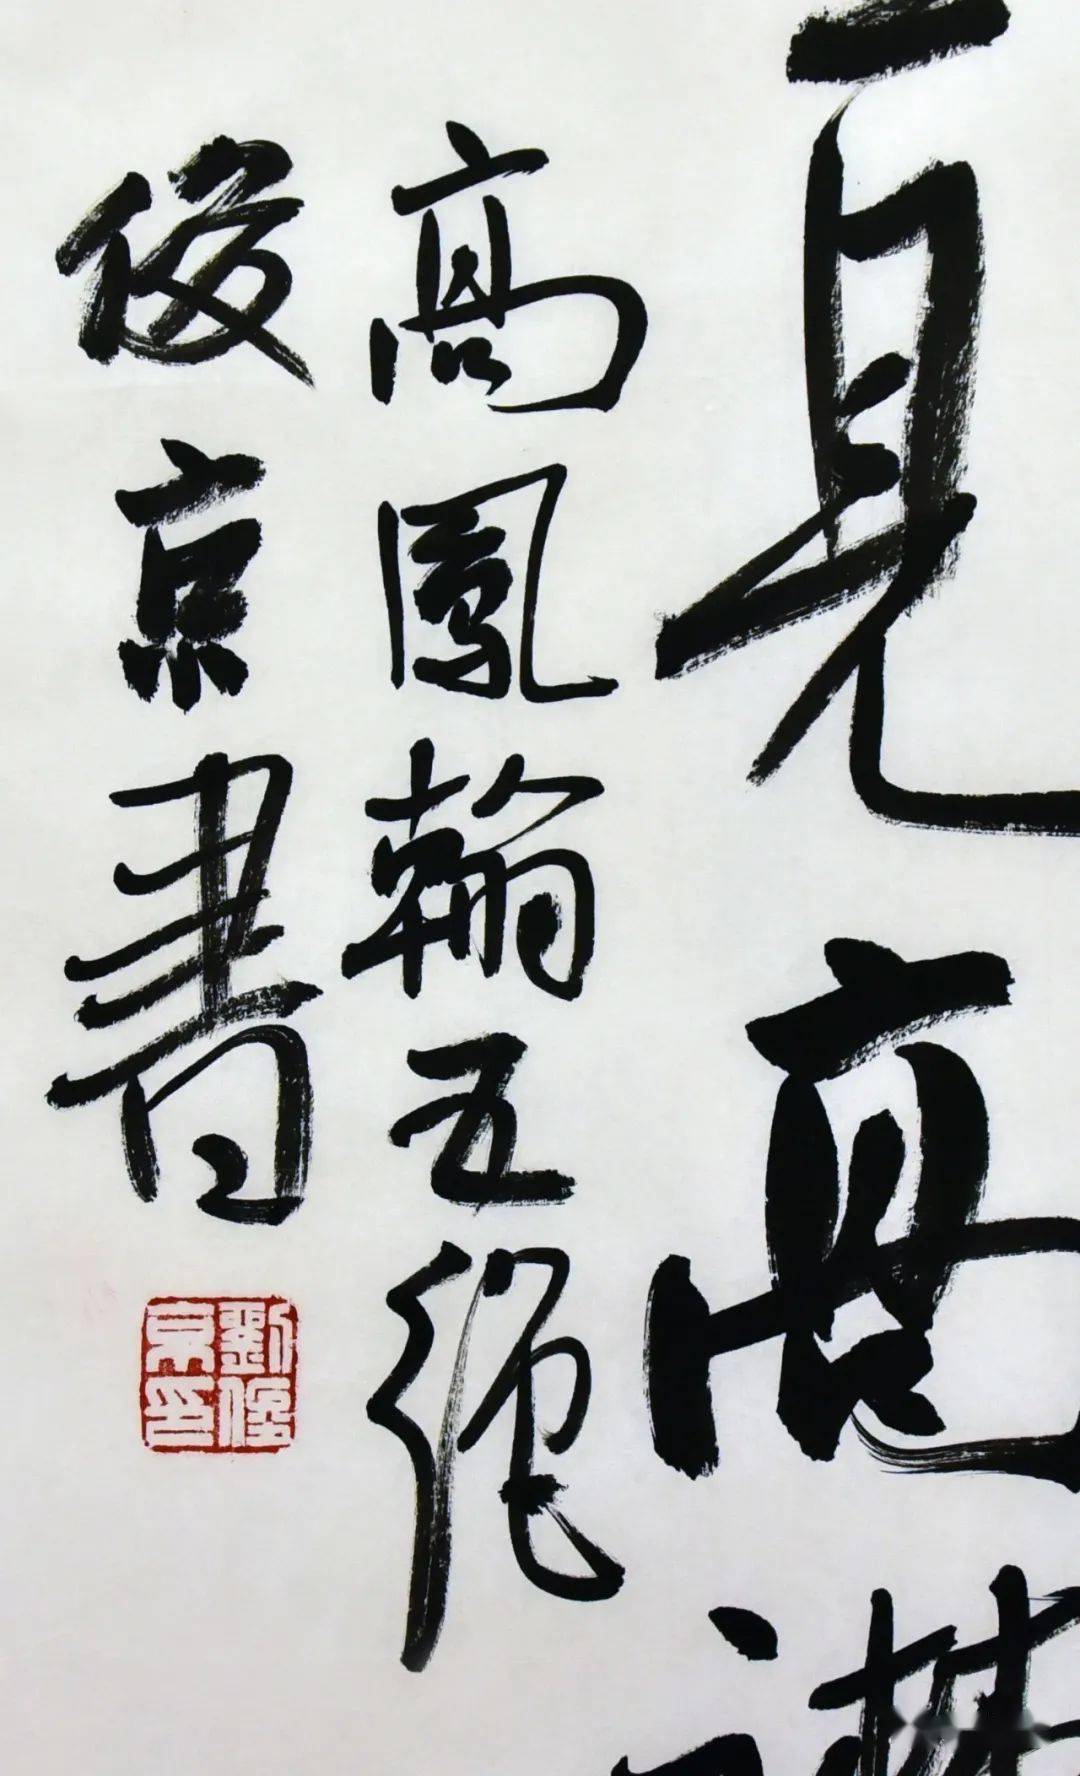 見高
高鳳翰五絶
俊京書
劉俊
京印